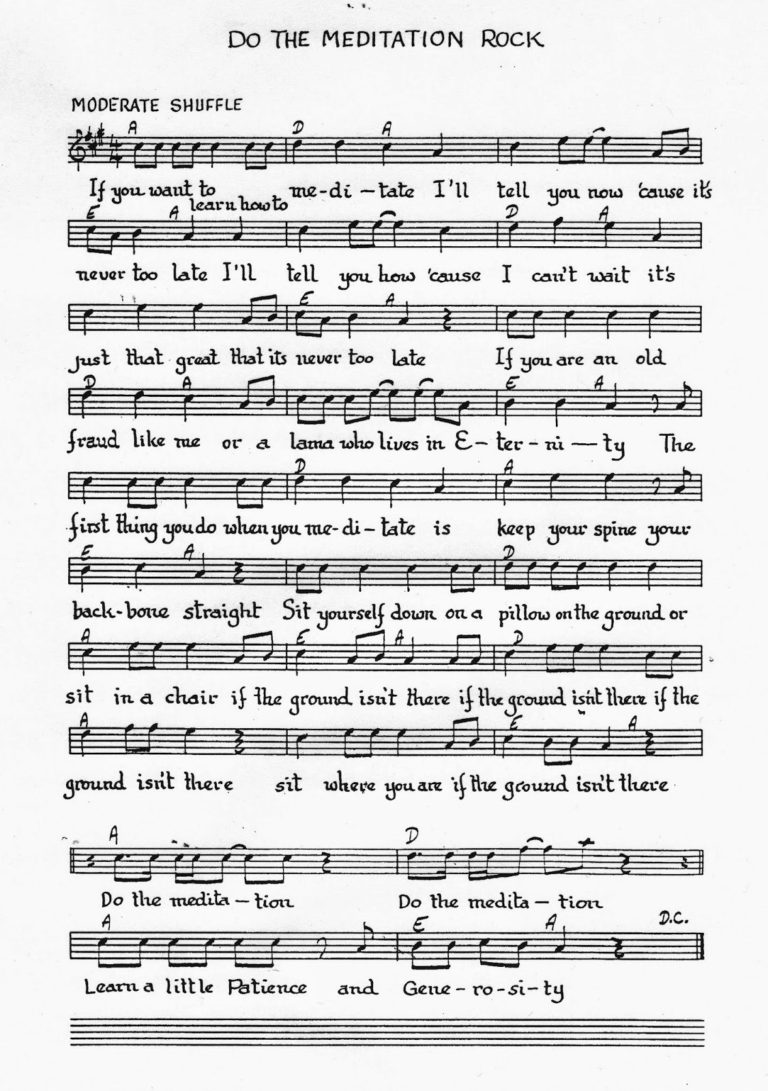 DO THE MEDITATION ROCK
MODERATE SHUFFLE
A D A
If you want to me-di-tate I'll tell you now 'cause it's
learn how to
E A D A
never too late I'll tell you how 'cause I can't wait it's
E A
just that great that its never too late If you are an old
D A E A
fraud like me or a lama who lives in E-ter-ni-ty The
D A
first thing you do when you me-di-tate is keep your spine your
E A D
back-bone straight Sit yourself down on a pillow on the ground or
A E A D
sit in a chair if the ground isn't there if the ground isn't there if the
A E A
ground isn't there sit where you are if the ground isn't there
A D
Do the medita-tion Do the medita-tion
A E A D.C.
Learn a little Patience and Gene-ro-si-ty